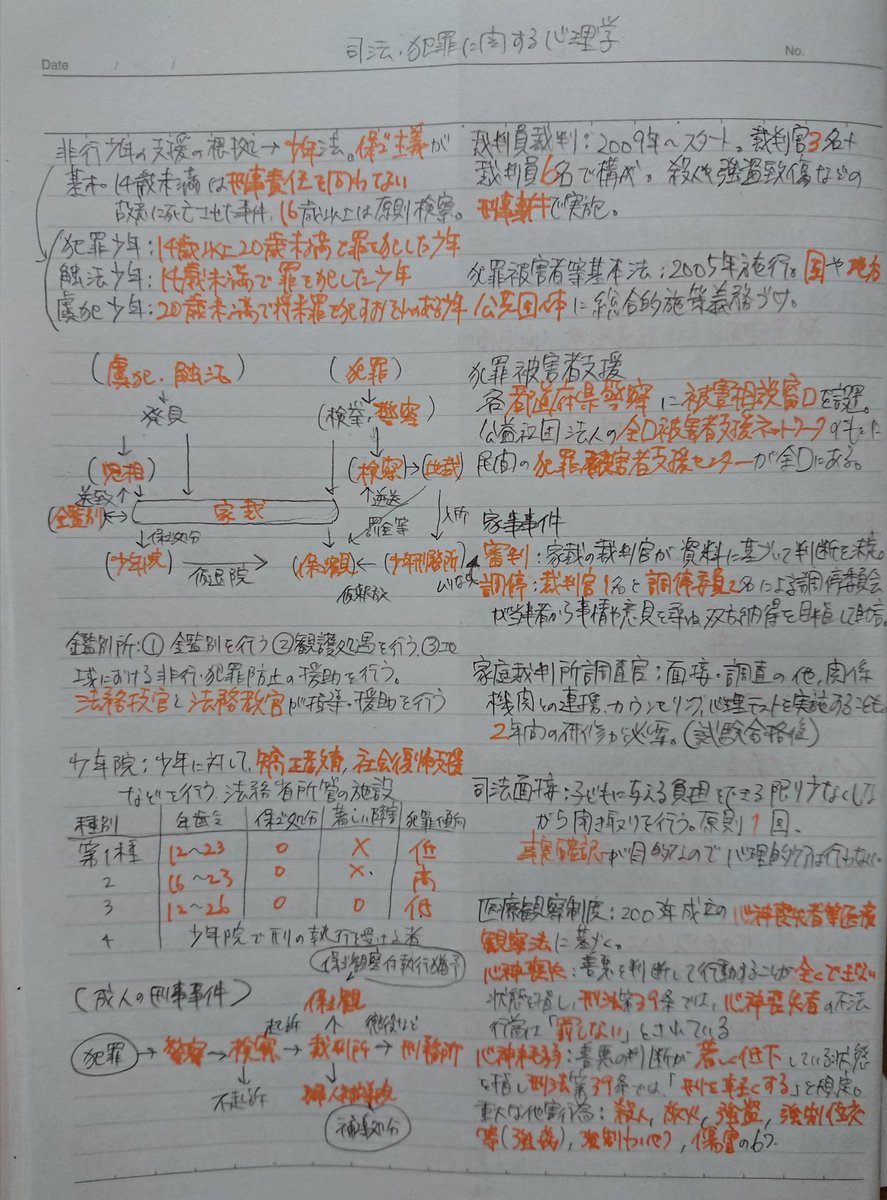 司法・犯罪に関する心理学
Date
No.
非行少年の支援の根拠→少年法。保護主義が
基本。14歳未満は刑事責任を問われない
故意に死亡させた事件、16歳以上は原則検察。
犯罪少年：14歳以上20歳未満で罪を犯した少年
触法少年：14歳未満で罪を犯した少年
虞犯少年：20歳未満で将来罪を犯すおそれのある少年
(虞犯・触法)
(犯罪)
発見
(検挙,警察)
(児相)
(検察)→(地裁)
送致
逆送
鑑別
家裁
罰金等
入所
保護処分
(少年院)
(保護観)
(少年刑務所)
仮退院
仮釈放
鑑別所：①鑑別を行う②観護処遇を行う,③地
域における非行・犯罪防止の援助を行う。
法務技官と法務教官が指導・援助を行う
少年院：少年に対して,矯正教育,社会復帰支援
などを行う,法務省所管の施設
種別 年齢 保護処分 著しい障害 犯罪傾向
第1種 12～23 〇 × 低
2 16～23 〇 × 高
3 12～26 〇 〇 低
4 少年院で刑の執行を受ける者
保護観察付執行猶予
(成人の刑事事件)
保護観
起訴
懲役など
犯罪→警察→検察→裁判所→刑務所
不起訴
婦人補導院
補導処分
裁判員裁判：2009年～スタート。裁判官3名+
裁判員6名で構成。殺人や強盗致傷などの
刑事事件で実施。
犯罪被害者等基本法：2005年施行。国や地方
公共団体に総合的施策義務づけ。
犯罪被害者支援
各都道府県警察に被害相談窓口を設置。
公益社団法人の全国被害者支援ネットワークのもとに
民間の犯罪被害者支援センターが全国にある。
家事事件
審判：家裁の裁判官が資料に基づいて判断を
調停：裁判官1名と調停委員2名による調停委員会
が当事者から事情や意見を尋ね双方納得を目指して助言
家庭裁判所調査官：面接・調査の他,関係
機関との連携,カウンセリング,心理テストを実施することも。
2年間の研修が必要。(試験合格後)
司法面接：子どもに与える負担をできる限り少なくしな
がら聞き取りを行う。原則1回、
事実確認が目的なので心理的ケアは行わない
医療観察制度：2003年成立の心神喪失者等医療
観察法に基づく。
心神喪失：善悪を判断して行動することが全くできない
状態を指し,刑法第39条では,心神喪失者の不法
行為は「罰しない」とされている
心神耗弱：善悪の判断が著しく低下している状態
を指し刑法第39条では,「刑を軽くする」と規定。
重大な他害行為：殺人,放火,強盗,強制性交
等(強姦),強制わいせつ,傷害の6つ